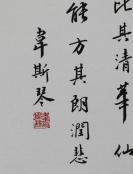 比其清華仙
能方其朗潤悲
韋斯琴